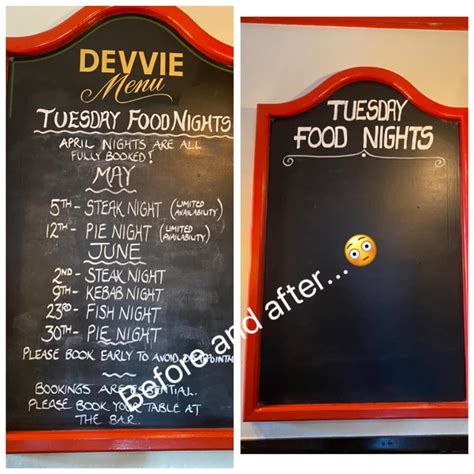 DEVVIE
Menu
TUESDAY FOOD NIGHTS
APRIL NIGHTS ARE ALL
FULLY BOOKED!
MAY
5TH - STEAK NIGHT (LIMITED AVAILABILITY)
12TH - PIE NIGHT (LIMITED AVAILABILITY)
JUNE
2ND - STEAK NIGHT
9TH - KEBAB NIGHT
23RD - FISH NIGHT
30TH - PIE NIGHT
PLEASE BOOK EARLY TO AVOID
BOOKINGS ARE ESSENTIAL.
PLEASE BOOK YOUR TABLE AT
THE BAR.
TUESDAY
FOOD NIGHTS
Before and after...😳